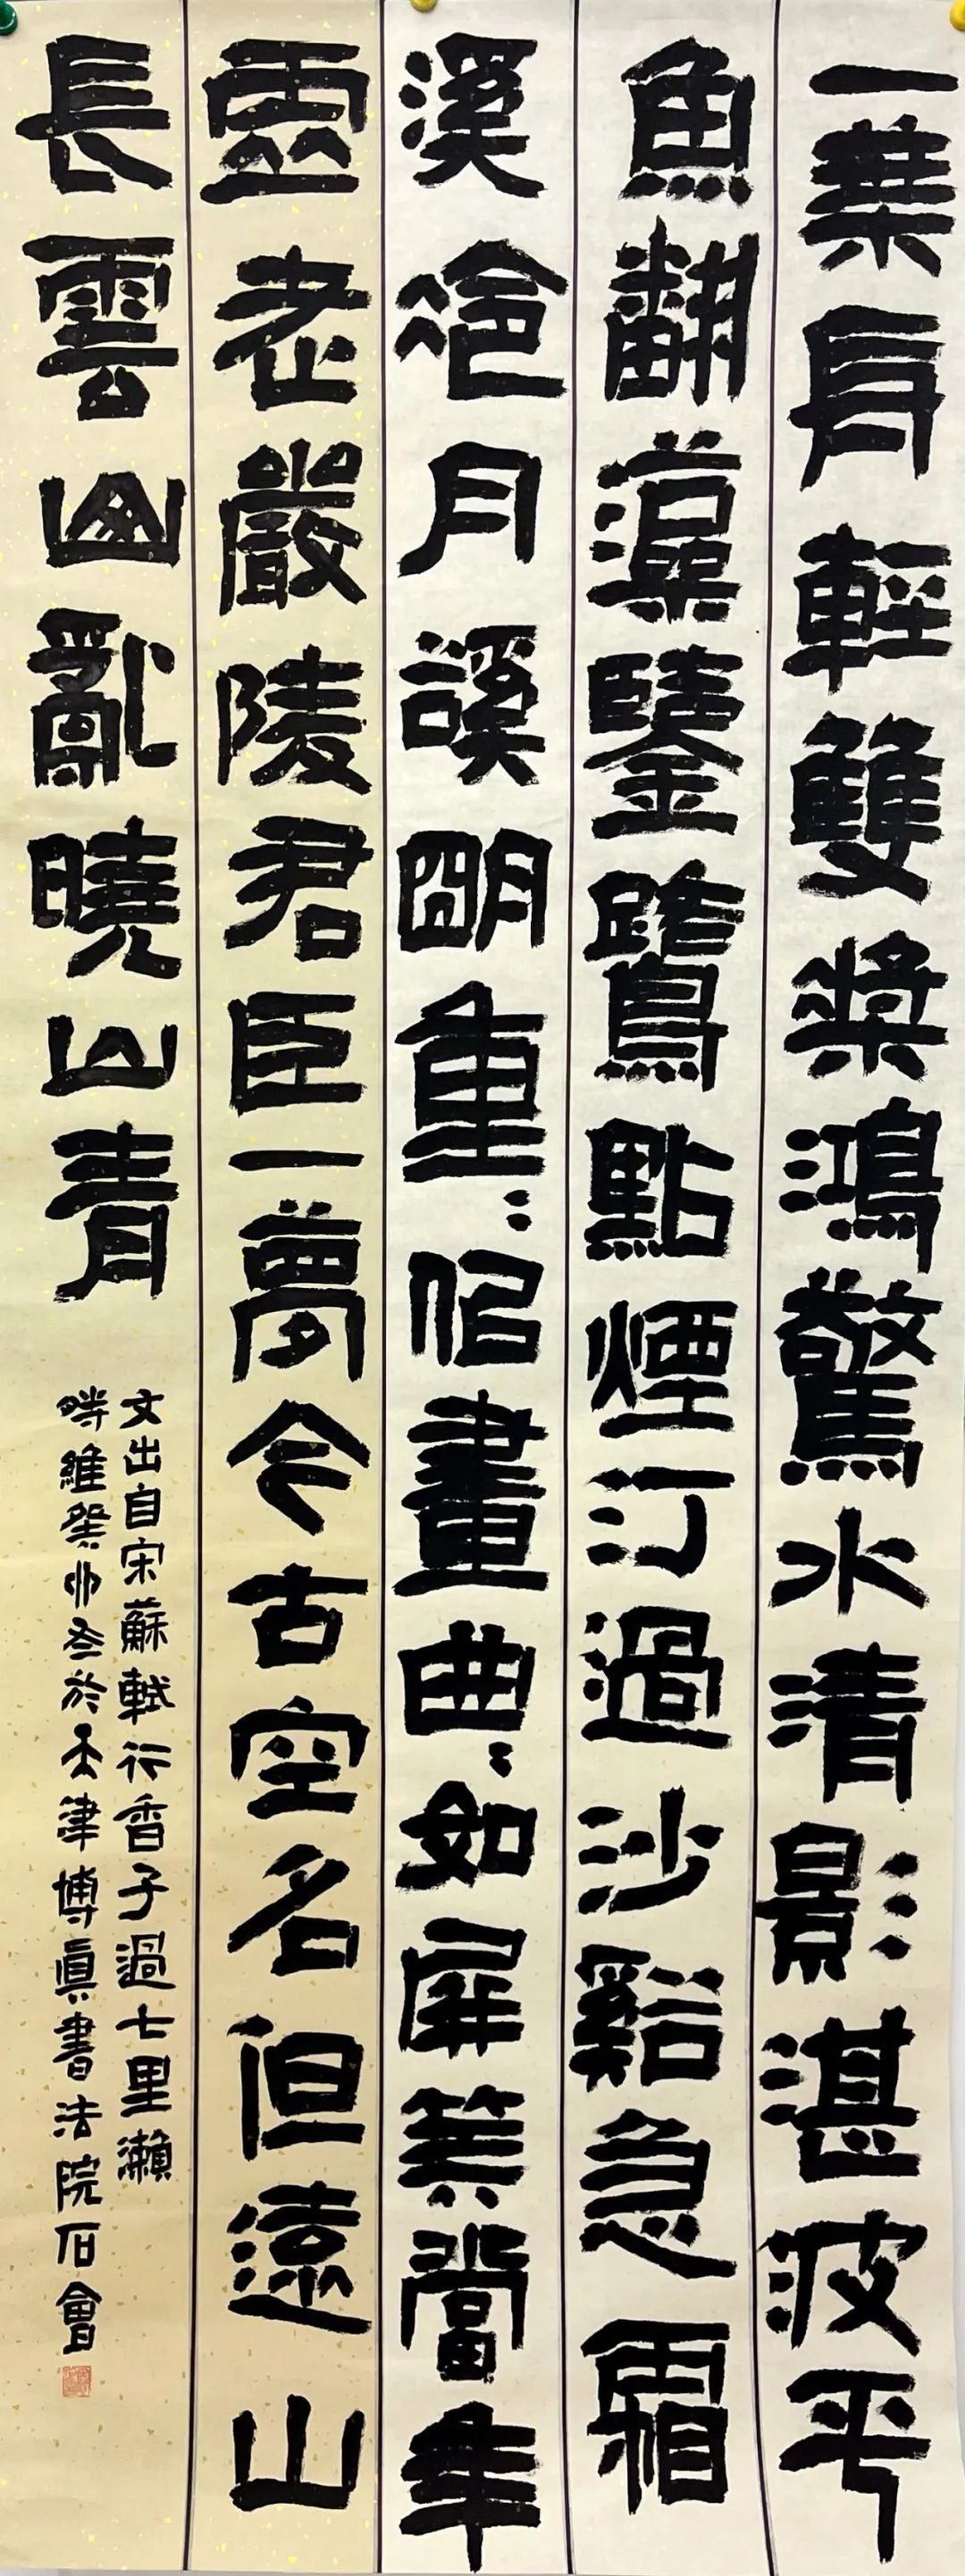 一葉舟輕雙槳鴻驚水清影湛波平
魚翻藻鑒鷺點煙汀過沙谿急霜
溪冷月谿明重〻佀畫曲〻如屏筭當年
虛老嚴陵君臣一夢今古空名但遠山
長雲山亂曉山青
文出自宋蘇軾行香子過七里瀨
時維癸卯冬於天津博真書法院石會